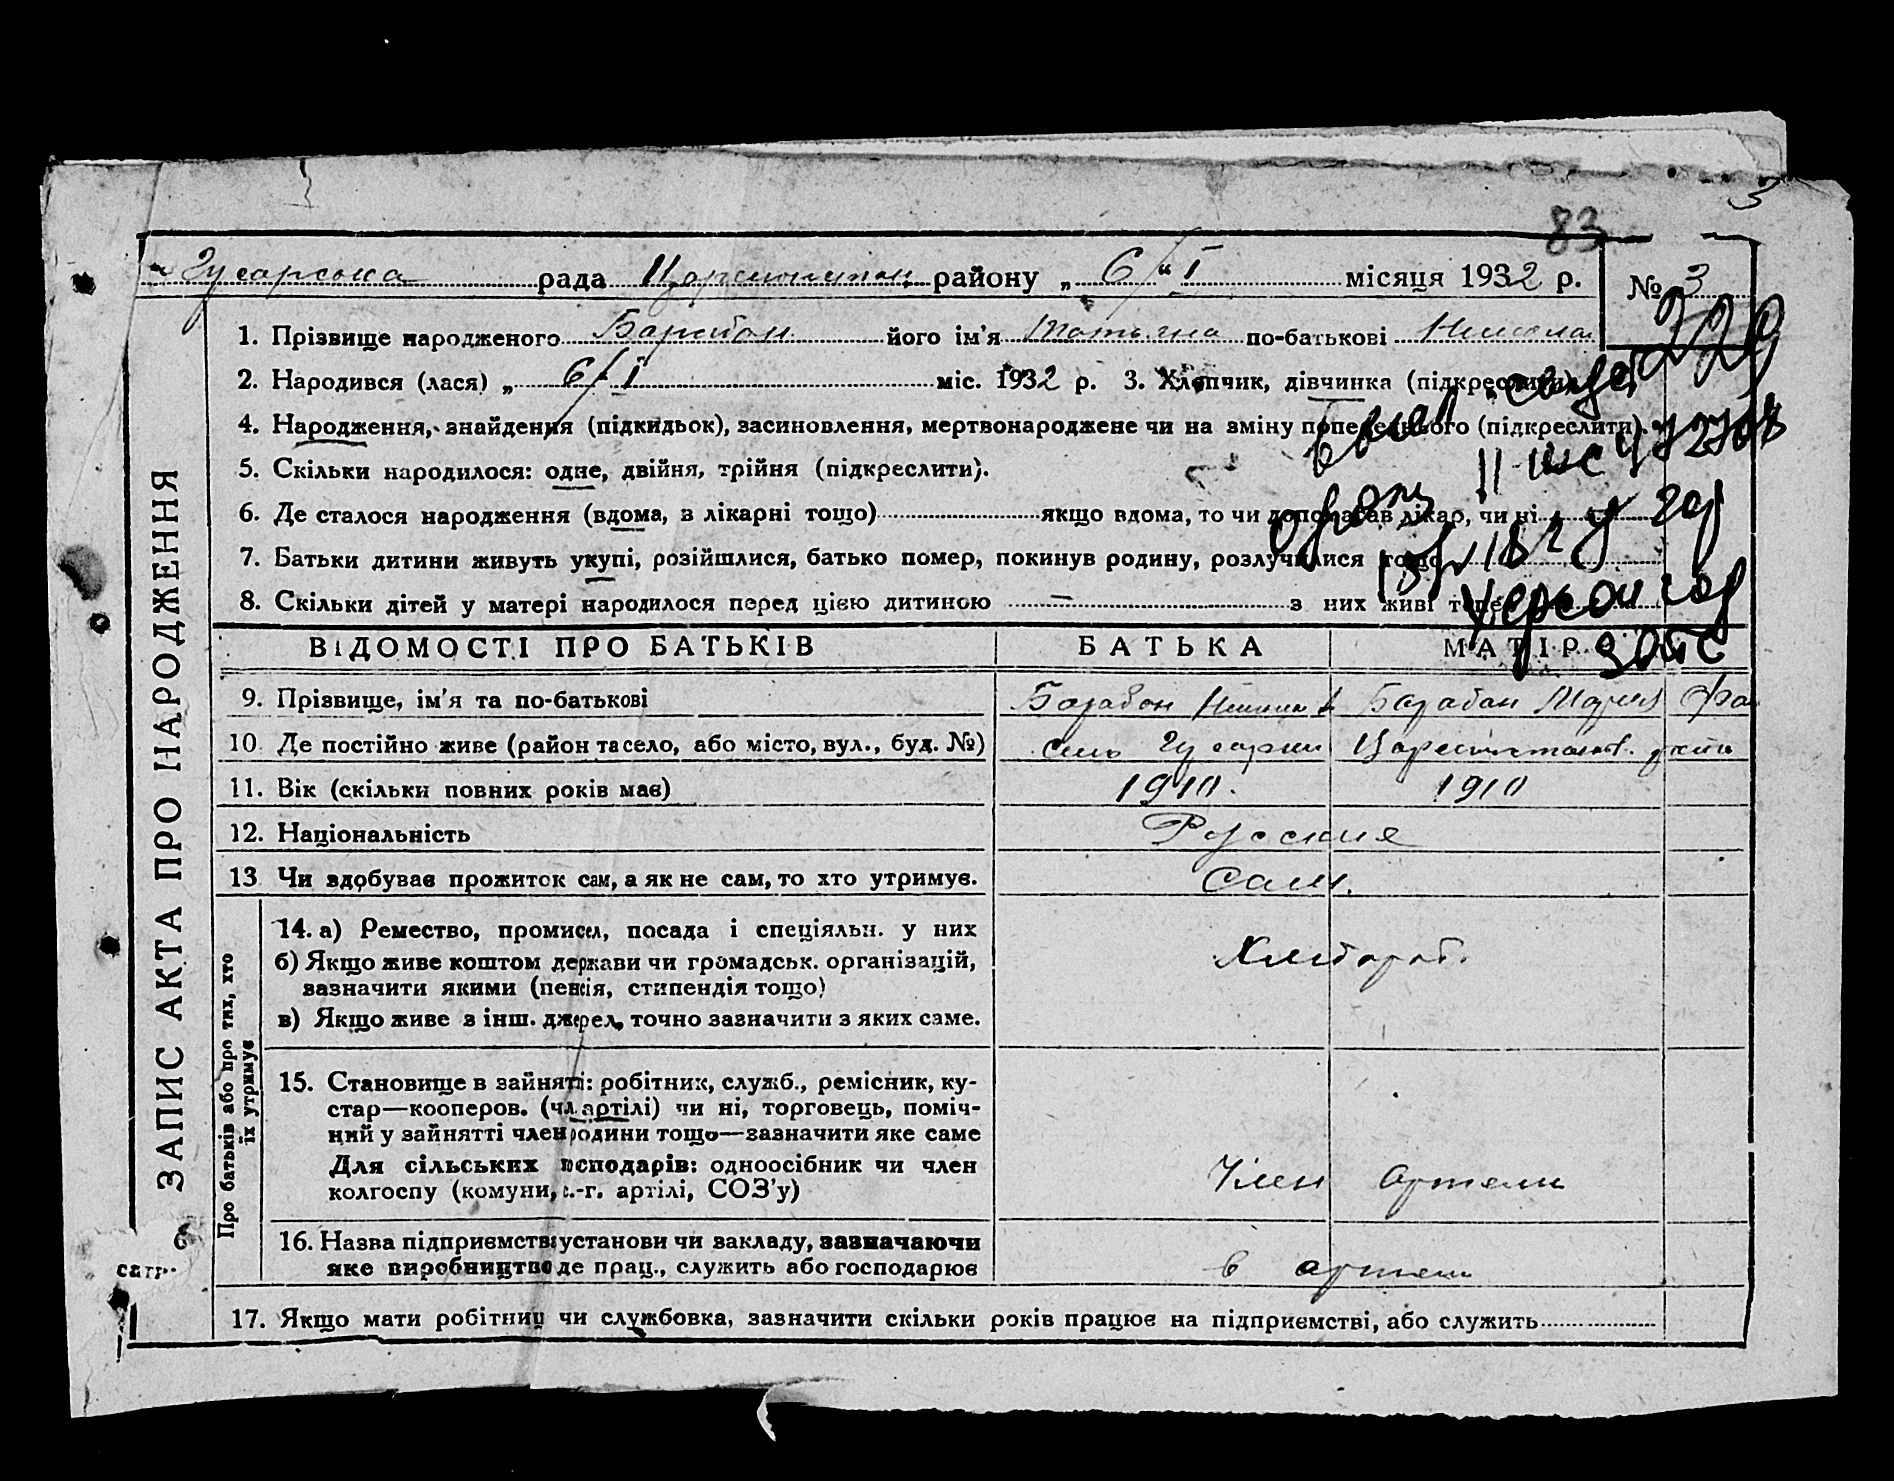 3
83
Гусарська рада Царекон района „6“ I місяця 1932 р. № 3
229
1. Прізвище народженого Барабан його ім'я Татьяна по-батькові
2. Народився (лася) „ 6/I міс. 1932 р. 3. Хлопчик, дівчинка (підкреслити)
4. Народження, знайдення (підкидьок), засиновлення, мертвонароджене чи на зміну попереднього (підкреслити).
5. Скільки народилося: одне, двійня, трійня (підкреслити).
6. Де сталося народження (вдома, в лікарні тощо) якщо вдома, то чи допомагав лікар, чи ні
7. Батьки дитини живуть укупі, розійшлися, батько помер, покинув родину, розлучилися тощо
8. Скільки дітей у матері народилося перед цією дитиною — з них живі тепер
Херсон гор
загс
ЗАПИС АКТА ПРО НАРОДЖЕННЯ
ВІДОМОСТІ ПРО БАТЬКІВ БАТЬКА МАТІР
9. Прізвище, ім'я та по-батькові Барабан Барабан Мария
10. Де постійно живе (район та село, або місто, вул., буд. №) село Гусарки
11. Вік (скільки повних років має) 1910. 1910
12. Національність Русския
13 Чи здобуває прожиток сам, а як не сам, то хто утримує. Сам.
Про батьків або про тих, хто
їх утримує
14. а) Ремество, промисел, посада і спеціяльн. у них
б) Якщо живе коштом держави чи громадськ. організацій, Хлебороб.
зазначити якими (пенсія, стипендія тощо)
в) Якщо живе з інш. джерел, точно зазначити з яких саме.
15. Становище в зайнятті: робітник, служб., ремісник, ку-
стар—кооперов. (чл. артілі) чи ні, торговець, поміч-
ний у зайнятті член родини тощо—зазначити яке саме
Для сільських господарів: одноосібник чи член Член артели
колгоспу (комуни, с.-г. артілі, СОЗ'у)
16. Назва підприємства установи чи закладу, зазначаючи
яке виробництво де прац., служить або господарює в артели
17. Якщо мати робітниц чи службовка, зазначити скільки років працює на підприємстві, або служить